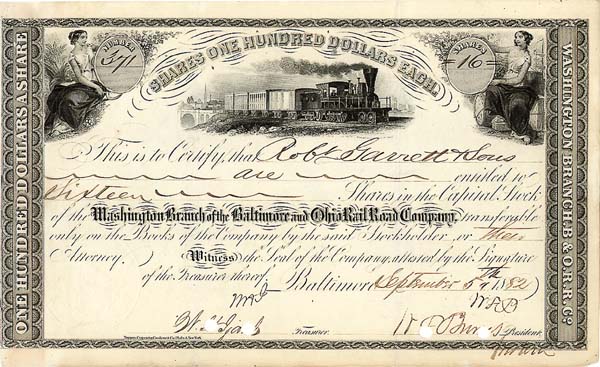 SHARES ONE HUNDRED DOLLARS EACH.
NUMBER
371
NUMBER
16
ONE HUNDRED DOLLARS A SHARE
WASHINGTON BRANCH B. & O. R. R. Co.
This is to Certify, that Robt Garrett & Sons
are entitled to
Sixteen Shares in the Capital Stock
of the Washington Branch of the Baltimore and Ohio Rail Road Company, transferable
only on the Books of the Company by the said Stockholder or their
Attorney. Witness the Seal of the Company, attested by the Signature
of the Treasurer thereof. Baltimore September 5th 1882
Treasurer.
President.